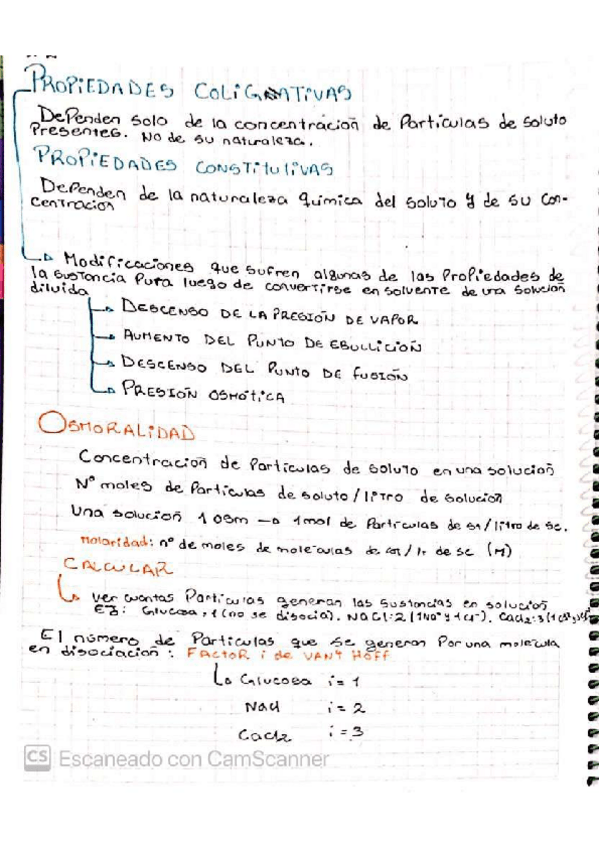 PROPIEDADES COLIGATIVAS
Dependen solo de la concentración de partículas de soluto
presentes. No de su naturaleza.
PROPIEDADES CONSTITUTIVAS
Dependen de la naturaleza química del soluto y de su con-
centración
Modificaciones que sufren algunas de las propiedades de
la sustancia pura luego de convertirse en solvente de una solución
diluida
DESCENSO DE LA PRESIÓN DE VAPOR
AUMENTO DEL PUNTO DE EBULLICIÓN
DESCENSO DEL PUNTO DE FUSIÓN
PRESIÓN OSMÓTICA
OSMORALIDAD
Concentración de partículas de soluto en una solución
N° moles de partículas de soluto / litro de solución
Una solución 1 osm → 1 mol de partículas de st / litro de sc.
Molaridad: n° de moles de moleculas de / lt de sc (M)
CALCULAR
ver cuantas partículas generan las sustancias en solución
EJ: Glucosa, 1 (no se disocia). NaCl: 2 (1 Na+ y 1 Cl-). CaCl2: 3
El número de partículas que se generan por una molécula
en disociación: FACTOR i de VANT HOFF
Glucosa i = 1
NaCl i = 2
CaCl2 i = 3
CS Escaneado con CamScanner